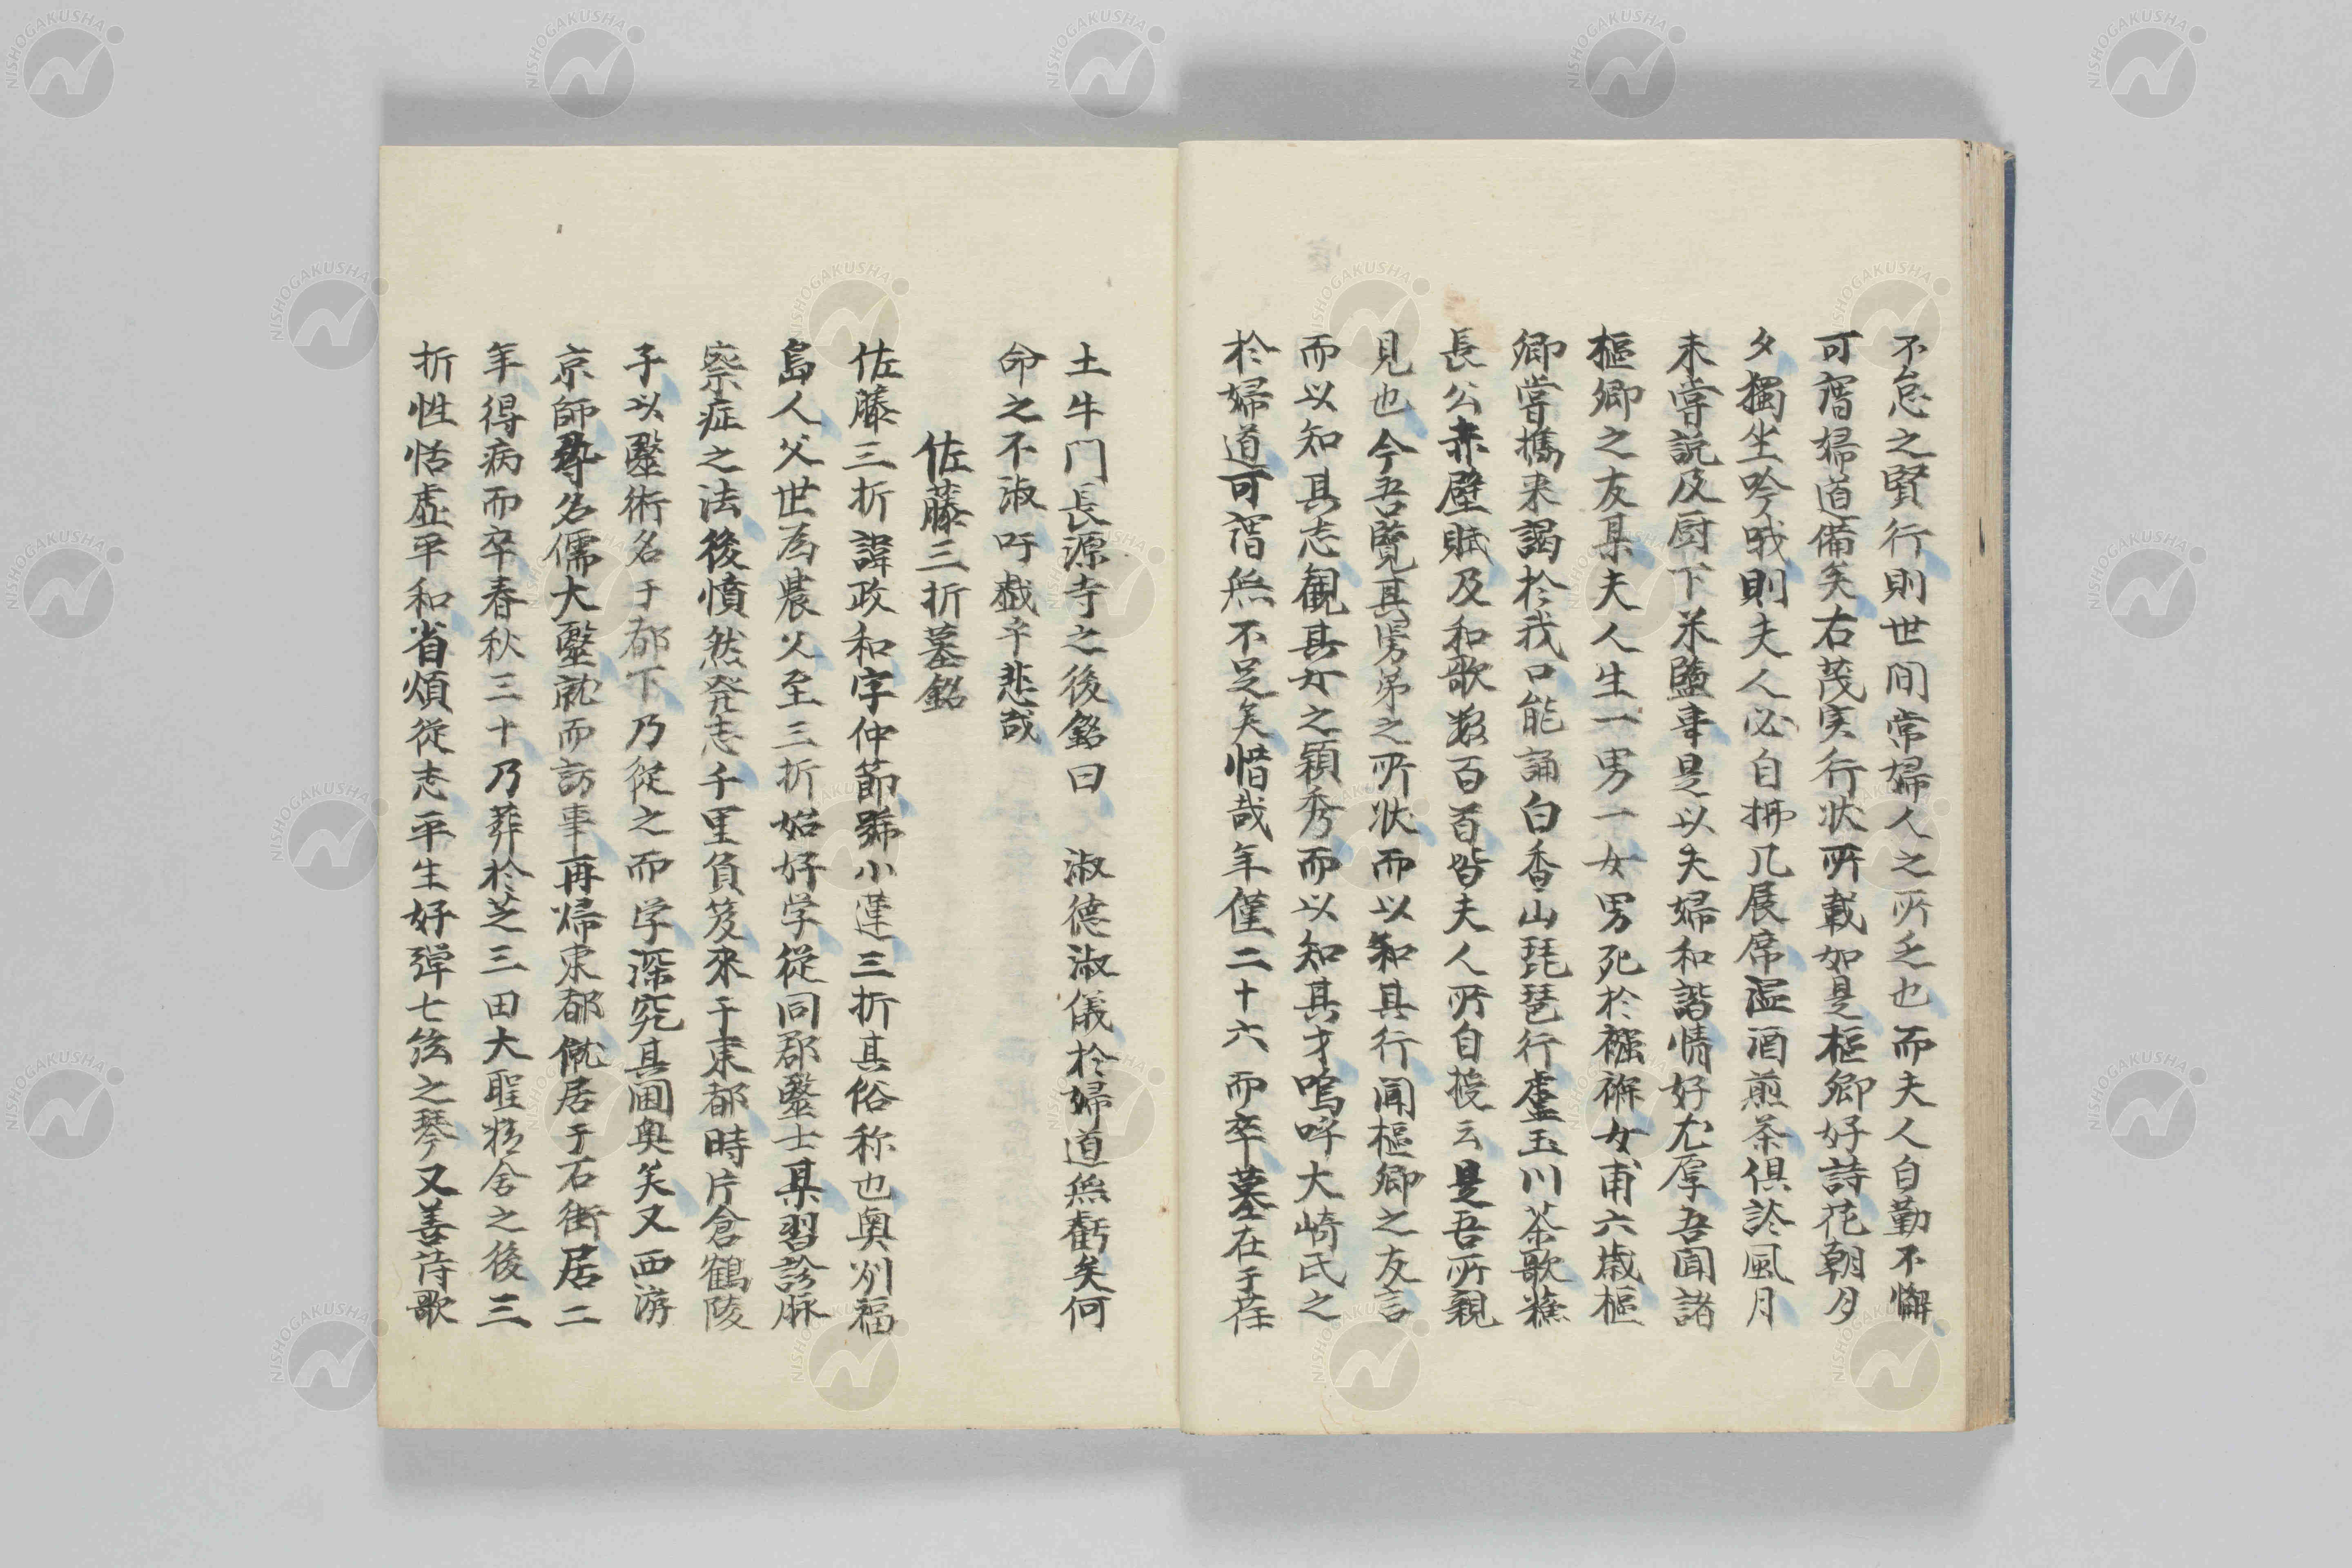 不怠之賢行則世間常婦人之所乏也而夫人自勤不懈
可謂婦道備矣右茂実行状所載如是樞卿好詩花朝月
夕獨坐吟哦則夫人必自拂几展席温酒煎茶俱談風月
未嘗説及厨下米鹽事是以夫婦和諧情好尤厚吾聞諸
樞卿之友某夫人生一男一女男死於襁褓女甫六歳樞
卿嘗携来謁於我口能誦白香山琵琶行盧玉川茶歌蘇
長公赤壁賦及和歌数百首皆夫人所自授云是吾所親
見也今吾覽其舅弟之所状而以知其行聞樞卿之友言
而以知其志観其女之穎秀而以知其才嗚呼大崎氏之
於婦道可謂無不足矣惜哉年僅二十六而卒墓在于荏
土牛门長源寺之後銘曰 淑德淑儀於婦道無虧矣何
命之不淑吁戯乎悲哉
佐藤三折墓銘
佐藤三折諱政和字仲節號小蓮三折其俗称也奥州福
島人父世為農父至三折始好学從同郡毉士某習診脉
察症之法後憤然発志千里負笈來于東都時片倉鶴陵
子以毉術名于都下乃從之而学深究其閫奥矣又西游
京師尋名儒大毉就而訪事再帰東都僦居于石街居二
年得病而卒春秋三十乃葬於芝三田大聖精舎之後三
折性恬虚平和省煩従志平生好弾七絃之琴又善詩歌
NISHOGAKUSHA